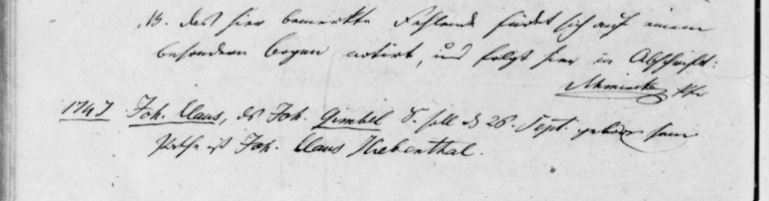 NB. das hier bemerkte Fehlende findet sich auf einem
besondern Bogen notirt, und folgt hier in Abschrift:
1747 Joh. Claus, des Joh. Gimbel S. soll d 26. Sept. geboren seyn.
Pathe ist Joh. Claus Hiebenthal.